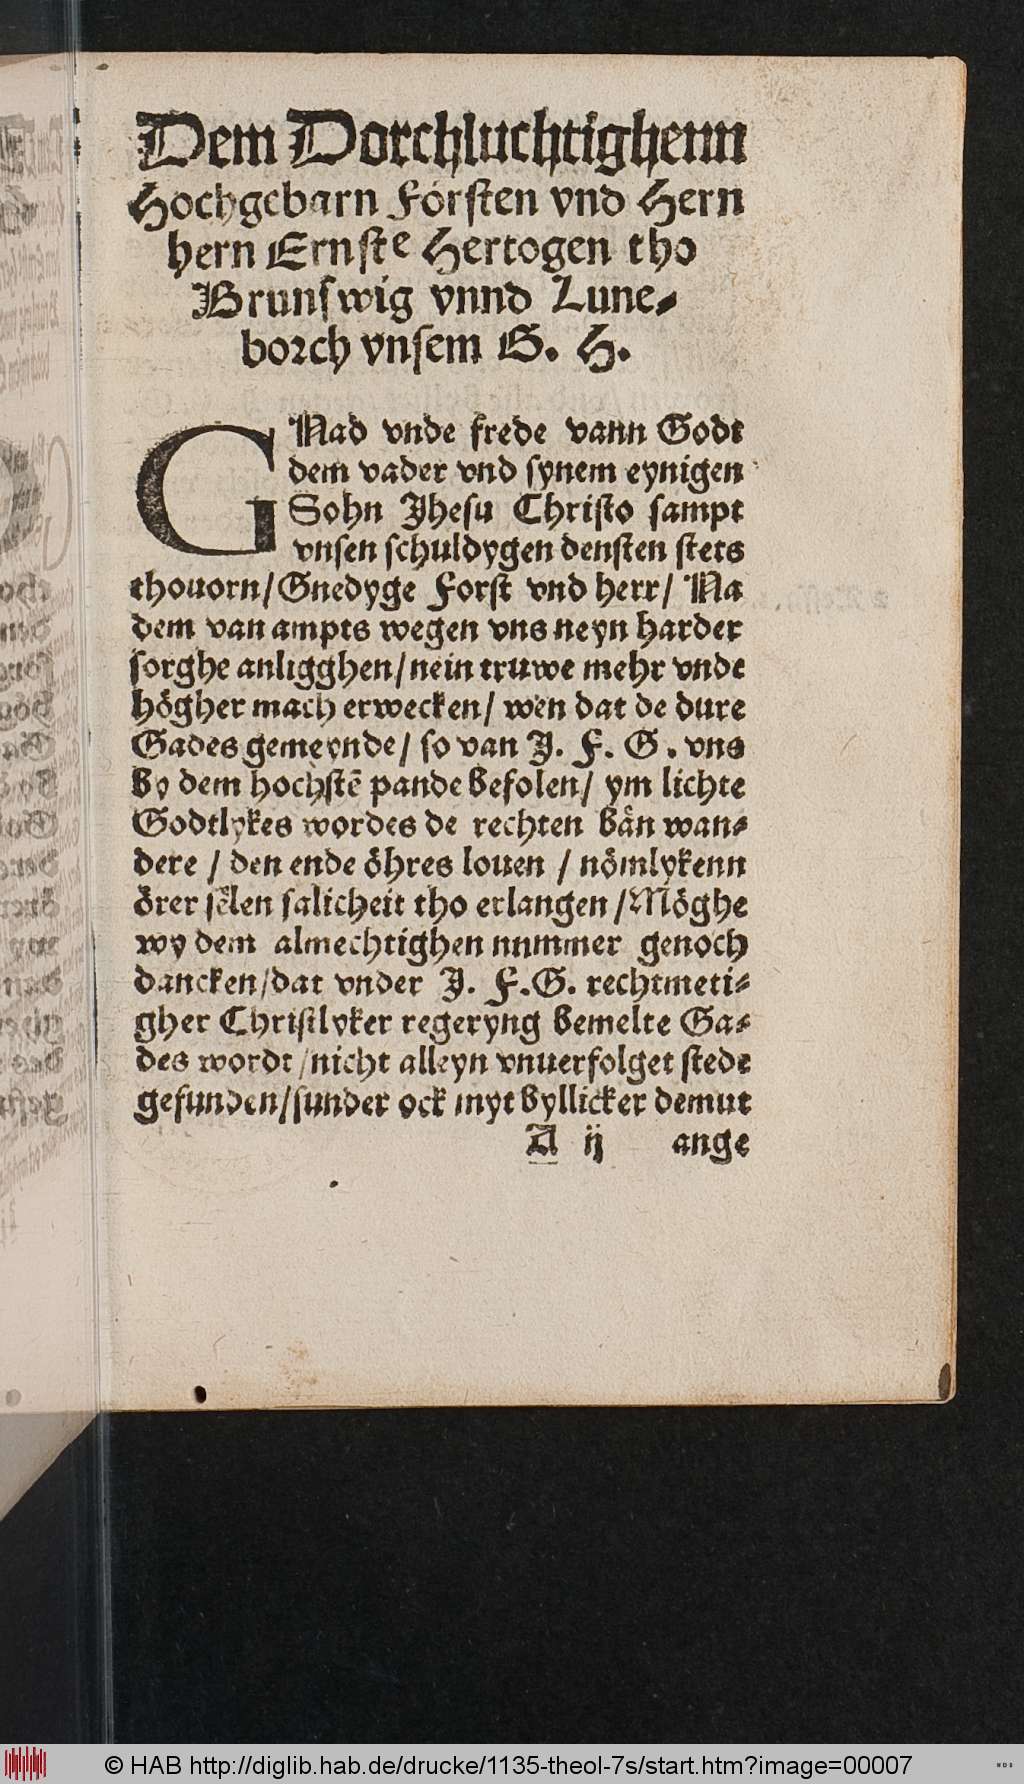 Dem Dorchluchtighenn
Hochgebarn Försten vnd Hern
hern Ernste Hertogen tho
Brunswig vnnd Lune-
borch vnsem G. H.
GNad vnde frede vann Godt
dem vader vnd synem eynigen
Sohn Jhesu Christo sampt
vnsen schuldygen densten stets
thouorn/ Gnedyge Forst vnd herr/ Na
dem van ampts wegen vns neyn harder
sorghe anligghen/ nein truwe mehr vnde
högher mach erwecken/ wen dat de dure
Gades gemeynde/ so van J. F. G. vns
by dem hochstē pande befolen/ ym lichte
Godtlykes wordes de rechten bân wan-
dere / den ende öhres louen / nömlykenn
örer sêlen salicheit tho erlangen / Möghe
wy dem almechtighen nummer genoch
dancken/ dat vnder J. F. G. rechtmeti-
gher Christlyker regeryng bemelte Ga-
des wordt /nicht alleyn vnuerfolget stede
gefunden/ sunder ock myt byllicker demut
A ij ange
© HAB http://diglib.hab.de/drucke/1135-theol-7s/start.htm?image=00007